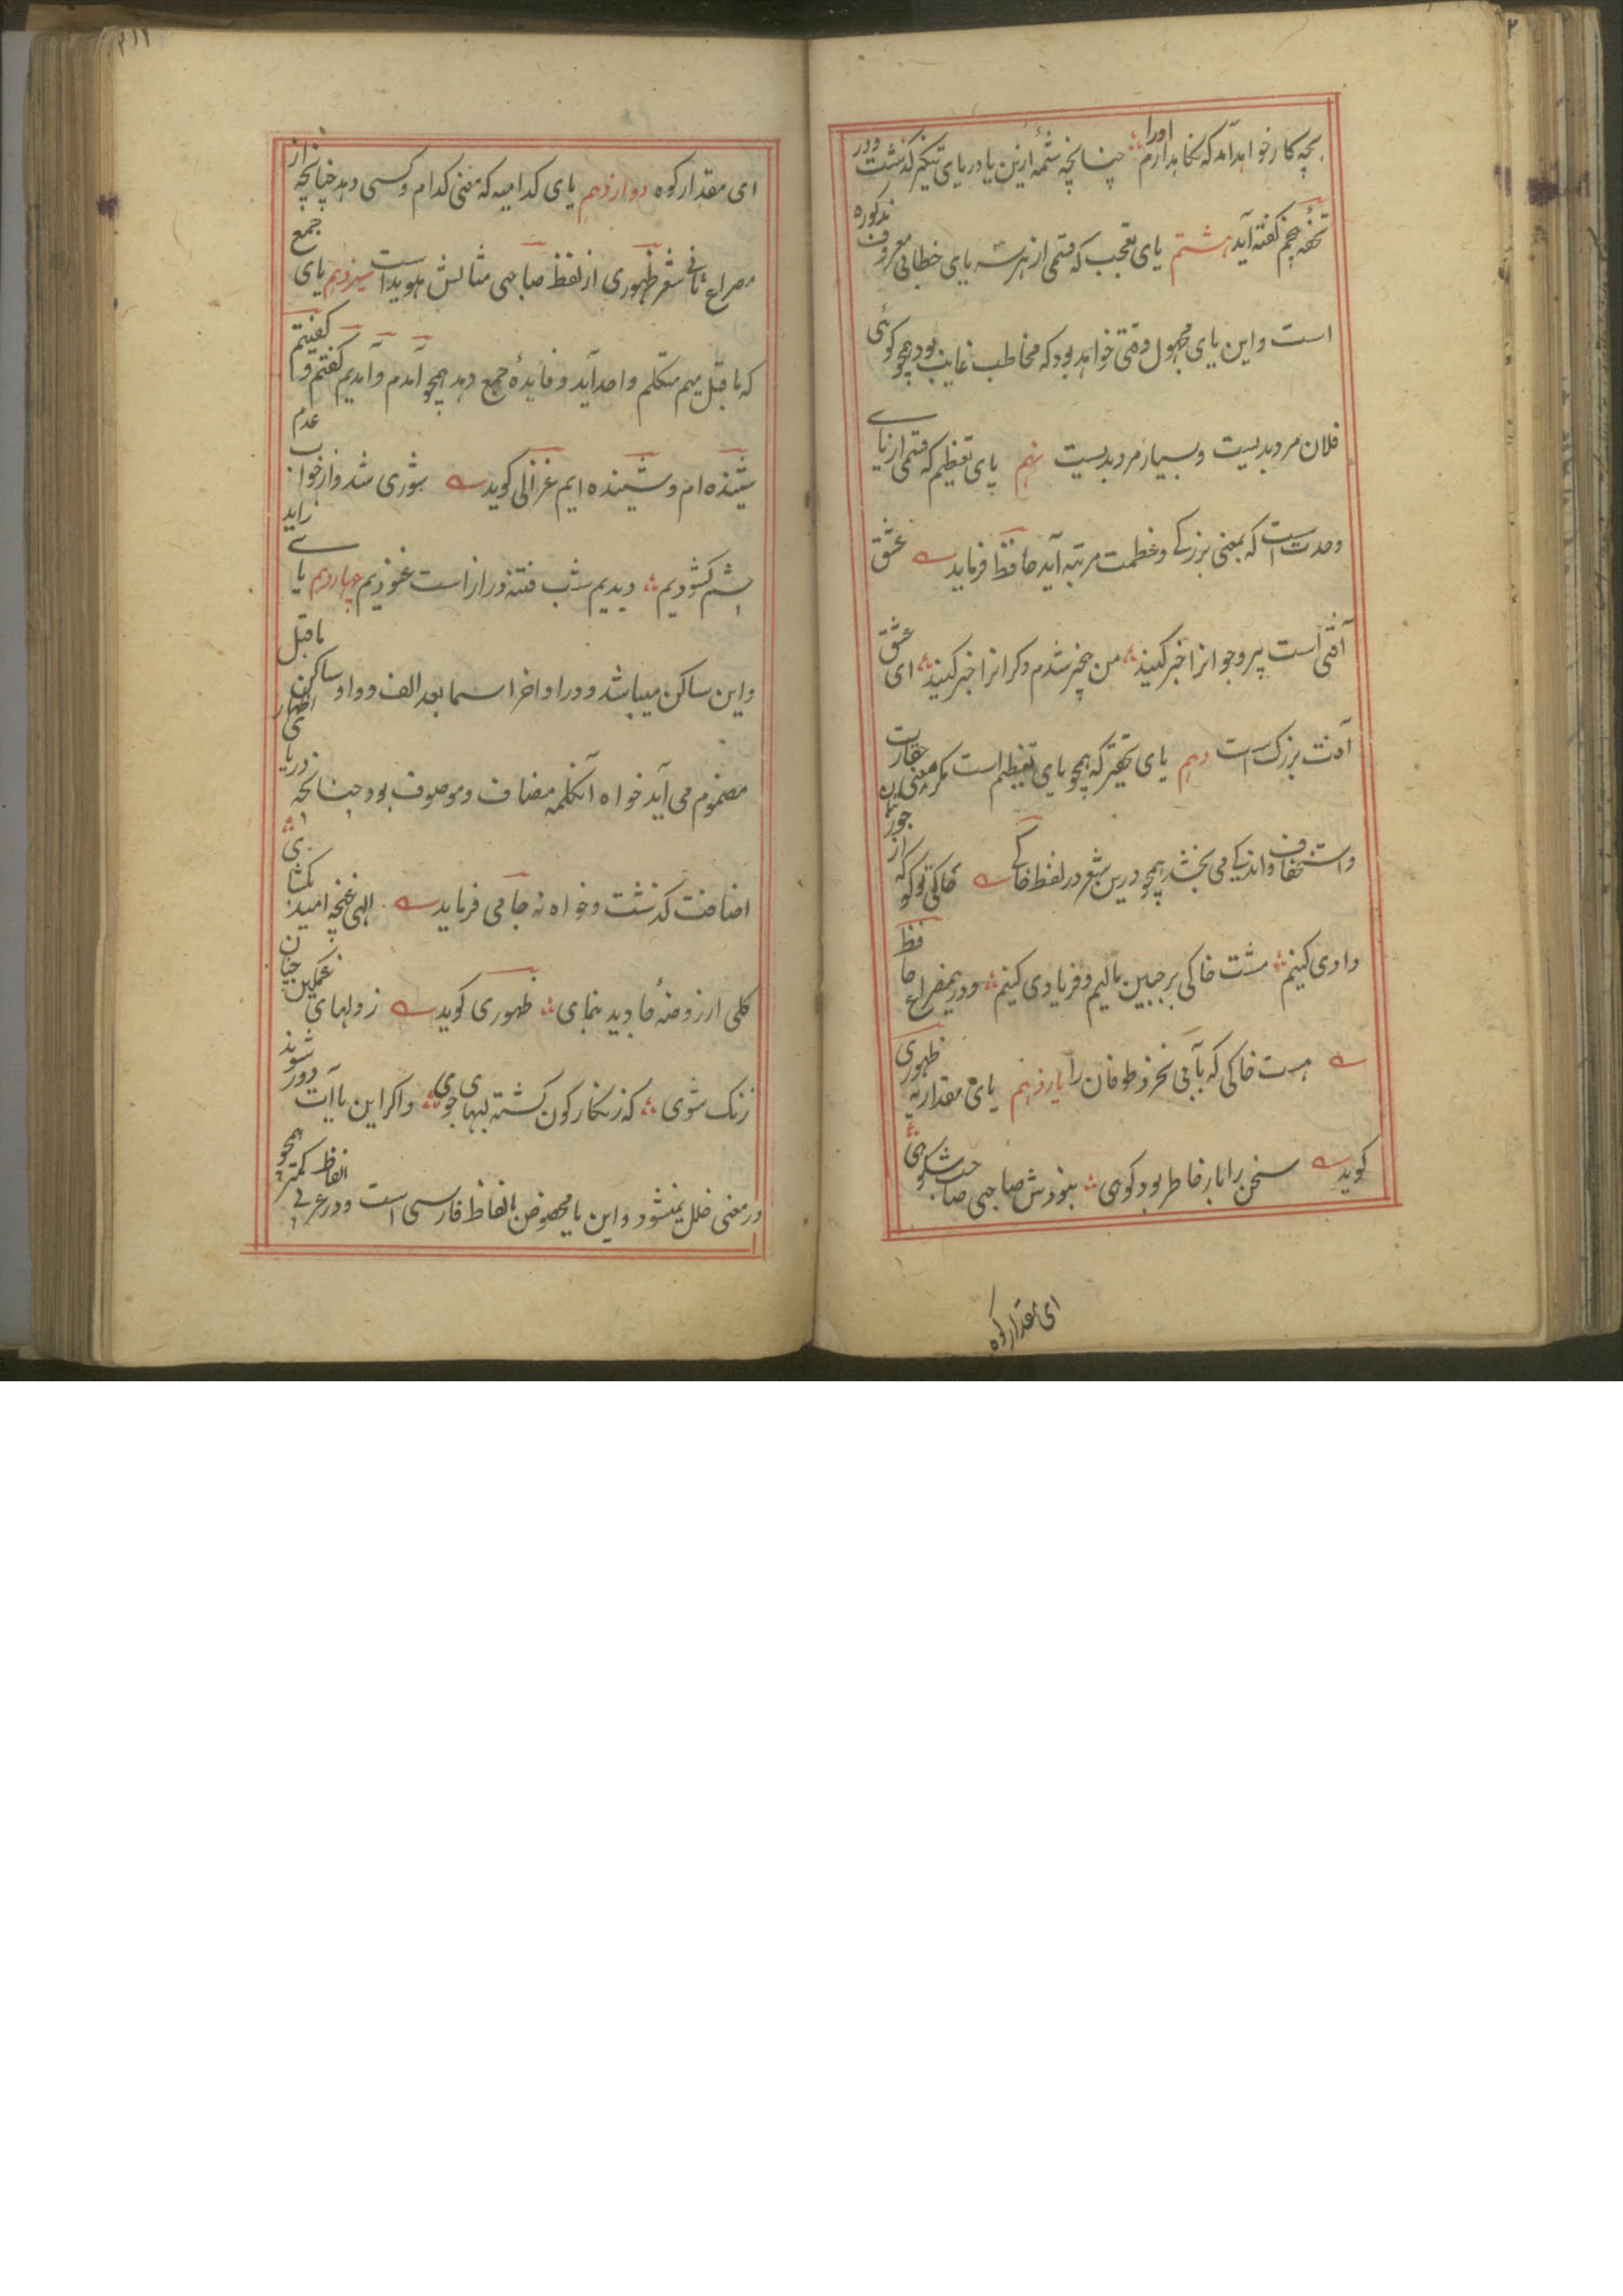 بچه کار خواهد آمد که نگاهدارم اورا چنانچه شمهٔ ازین یا در یای تنکیر گذشت و در
تحفه پنجم گفته آید هشتم یای تعجب که قسمی از هر سه یای خطابی معروف مذکوره
است و این یای مجهول وقتی خواهد بود که مخاطب غایب بود همچو گوئی
فلان مرد بدیست و بسیار مرد بدیست نهم یای تعظیم که قسمی از یای
وحدت است که بمعنی بزرگی و عظمت مرتبه آید حافظ فرماید عشق
آفتی است پیر و جوانرا خبر کنید من بیخبر شدم دگرانرا خبر کنید ای عشق
آفت بزرگ است دهم یای تحقیر که همچو یای تعظیم است مگر معنی حقارت
و استخفاف و اندکی می بخشد همچو درین شعر در لفظ خاکی خاکی تو کو که از جور بتان
دادی کنیم مشت خاکی بر جبین مالیم و فریادی کنیم و در یمصراع حافظ
هست خاکی که بآبی نخرد طوفان را یازدهم یای مقداریه ظهوری
گوید سخن را بار خاطر بود کوهی نبودش صاحبی صاحب شکوهی
ای مقدار کوه
ای مقدار کوه دوازدهم یای کدامیه که معنی کدام و کسی دهد چنانچه از
مصراع ثانی شعر ظهوری از لفظ صاحبی مثالش هویدا است سیزدهم یای جمع
که ما قبل میم متکلم واحد آید و فایدهٔ جمع دهد همچو آمدم و آمدیم گفتم و گفتیم
شنیده ام و شنیده ایم غزالی گوید شوری شد و از خواب عدم
چشم گشودیم دیدیم شب فتنه دراز است غنودیم چهاردهم یای زاید
و این ساکن میباشد و در اواخر اسما بعد الف و واو ساکن ما قبل
مضموم می آید خواه آنکلمه مضاف و موصوف بود چنانچه در یای اظهار
اضافت گذشت و خواه نه جامی فرماید الهی غنچه امید بگشای
گلی از روضهٔ جاوید بنمای ظهوری گوید ز دلهای غمگین چنان
زنگ شوی که زنگارگون گشته لبهای جوی و اگر این یا آت دور شوند
در معنی خلل نمیشود و این یا مخصوص بالفاظ فارسی است و در عربی الفاظ کمتر همچو